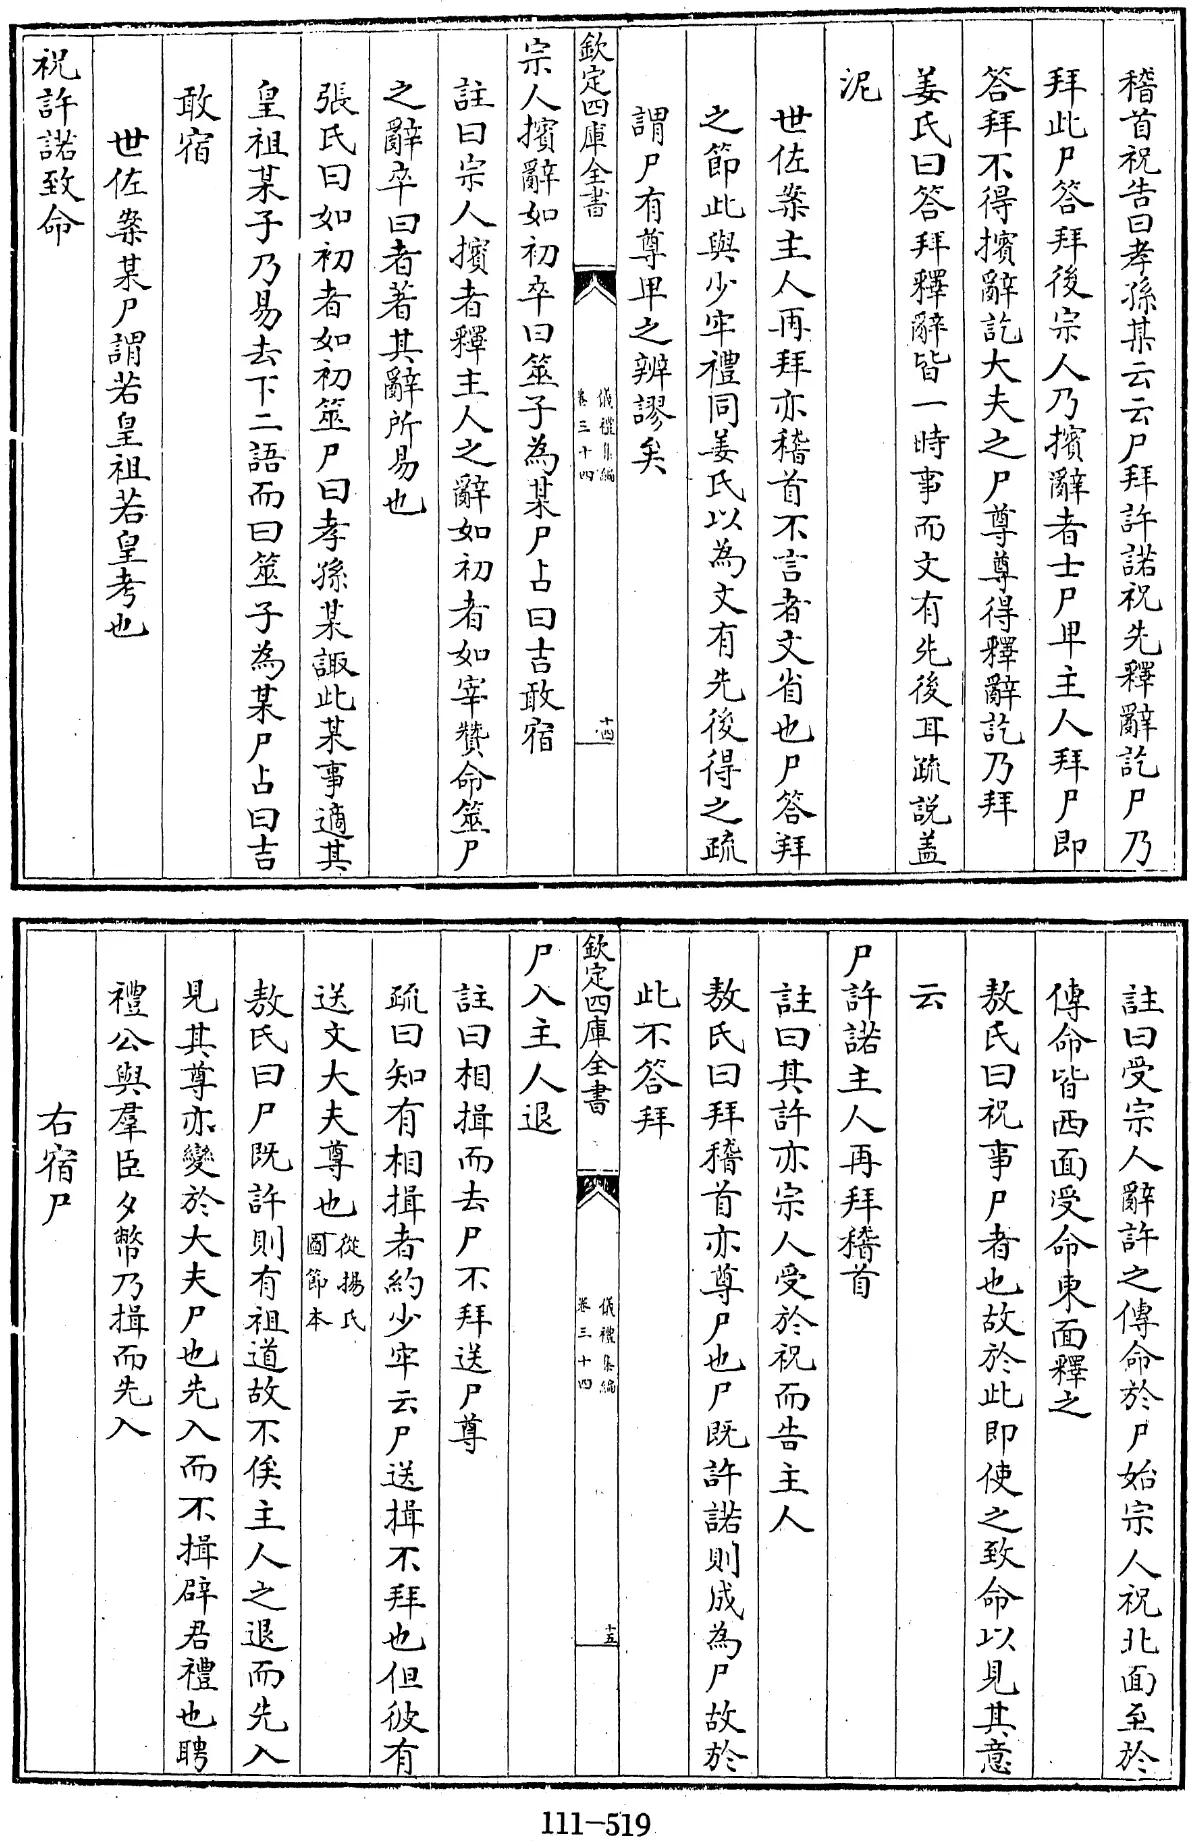 稽首祝告曰孝孫某云云尸拜許諾祝先釋辭訖尸乃
拜此尸答拜後宗人乃擯辭者士尸卑主人拜尸即
答拜不得擯辭訖大夫之尸尊尊得釋辭訖乃拜
姜氏曰答拜釋辭皆一時事而文有先後耳疏說盖
泥
世佐案主人再拜亦稽首不言者文省也尸答拜
之節此與少牢禮同姜氏以為文有先後得之疏
謂尸有尊卑之辨謬矣
欽定四庫全書
儀禮集編
卷三十四
十四
宗人擯辭如初卒曰筮子為某尸占曰吉敢宿
註曰宗人擯者釋主人之辭如初者如宰贊命筮尸
之辭卒曰者著其辭所易也
張氏曰如初者如初筮尸曰孝孫某諏此某事適其
皇祖某子乃易去下二語而曰筮子為某尸占曰吉
敢宿
世佐案某尸謂若皇祖若皇考也
祝許諾致命
註曰受宗人辭許之傳命於尸始宗人祝北面至於
傳命皆西面受命東面釋之
敖氏曰祝事尸者也故於此即使之致命以見其意
云
尸許諾主人再拜稽首
註曰其許亦宗人受於祝而告主人
敖氏曰拜稽首亦尊尸也尸既許諾則成為尸故於
此不答拜
欽定四庫全書
儀禮集編
卷三十四
十五
尸入主人退
註曰相揖而去尸不拜送尸尊
疏曰知有相揖者約少牢云尸送揖不拜也但彼有
送文大夫尊也從楊氏圖節本
敖氏曰尸既許則有祖道故不俟主人之退而先入
見其尊亦變於大夫尸也先入而不揖辟君禮也聘
禮公與羣臣夕幣乃揖而先入
右宿尸
111-519